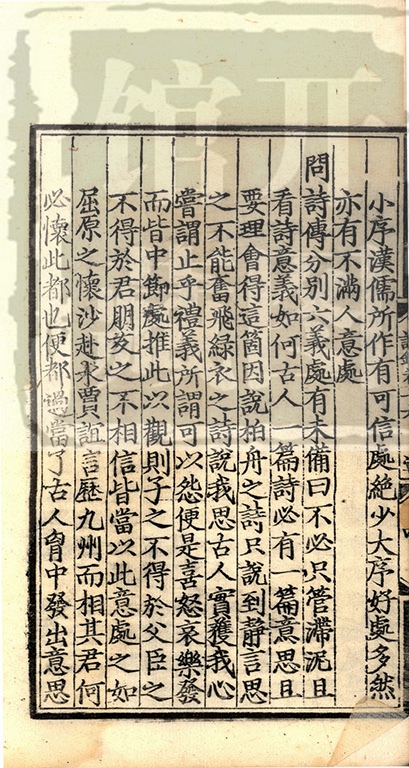 小序漢儒所作有可信處絶少大序好處多然
亦有不滿人意處
問詩傳分别六義處有未備曰不必只管滯泥且
看詩意義如何古人一篇詩必有一篇意思且
要理會得這箇因說柏舟之詩只說到靜言思
之不能奮飛綠衣之詩說我思古人實獲我心
嘗謂止乎禮義所謂可以怨便是喜怒哀樂發
而皆中節處推此以觀則子之不得於父臣之
不得於君朋友之不相信皆當以此意處之如
屈原之懷沙赴水賈誼言歷九州而相其君何
必懷此都也便都過當了古人胷中發出意思